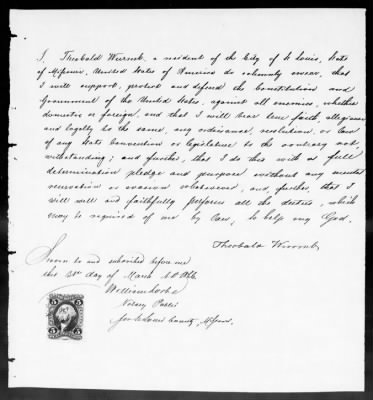 I, Theobald Wurmb, a resident of the City of St Louis, State
of Missouri, United States of America do solemnly swear, that
I will support, protect and defend the Constitution and
Government of the United States, against all enemies, whether
domestic or foreign, and that I will bear true faith, allegiance
and loyalty to the same, any ordinance, resolution, or law
of any State Convention or legislature to the contrary not,
withstanding; and further, that I do this with a full
determination pledge and purpose without any mental
reservation or evasion whatsoever, and, further, that I
will well and faithfully perform all the duties, which
may be required of me by law, so help my God.
Theobald Wurmb
Sworn to and subscribed before me
this day of March A.D.
William
Notary Public
St Louis County, Missouri.
5 5